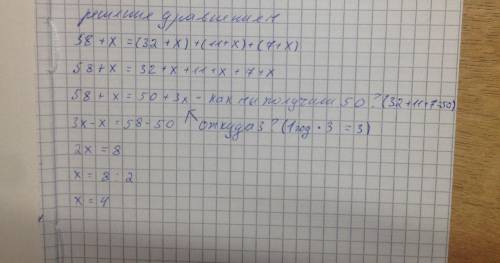 решение уравнением
58 + x = (32 + x) + (11 + x) + (7 + x)
58 + x = 32 + x + 11 + x + 7 + x
58 + x = 50 + 3x - как мы получили 50? (32+11+7=50)
3x - x = 58 - 50 откуда 3? (1 год · 3 = 3)
2x = 8
x = 8 : 2
x = 4